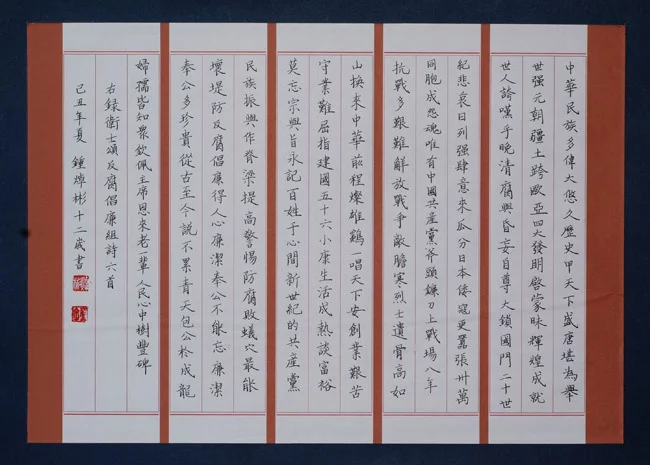 中華民族多偉大悠久歷史甲天下盛唐堪為舉
世强元朝疆土跨歐亞四大發明啓蒙昧輝煌成就
世人誇嘆乎晚清腐興昏妄自尊大鎖國門二十世
紀悲哀日列强肆意來瓜分日本倭寇更囂張卅萬
同胞成怨魂唯有中國共產黨斧頭鐮刀上戰場八年
抗戰多艱難解放戰爭敵膽寒烈士遺骨高如
山換來中華前程燦雄鷄一唱天下安創業艱苦
守業難屈指建國五十六小康生活成熱談富裕
莫忘宗興旨永記百姓于心間新世紀的共產黨
民族振興作脊梁提高警惕防腐敗蟻穴最能
壞堤防反腐倡廉得人心廉潔奉公不能忘廉潔
奉公多珍貴從古至今說不累青天包公於成龍
婦孺皆知衆欽佩主席恩來老一輩人民心中樹豐碑
右録衛士頌反腐倡廉組詩六首
己丑年夏 鍾埻彬十二歲書